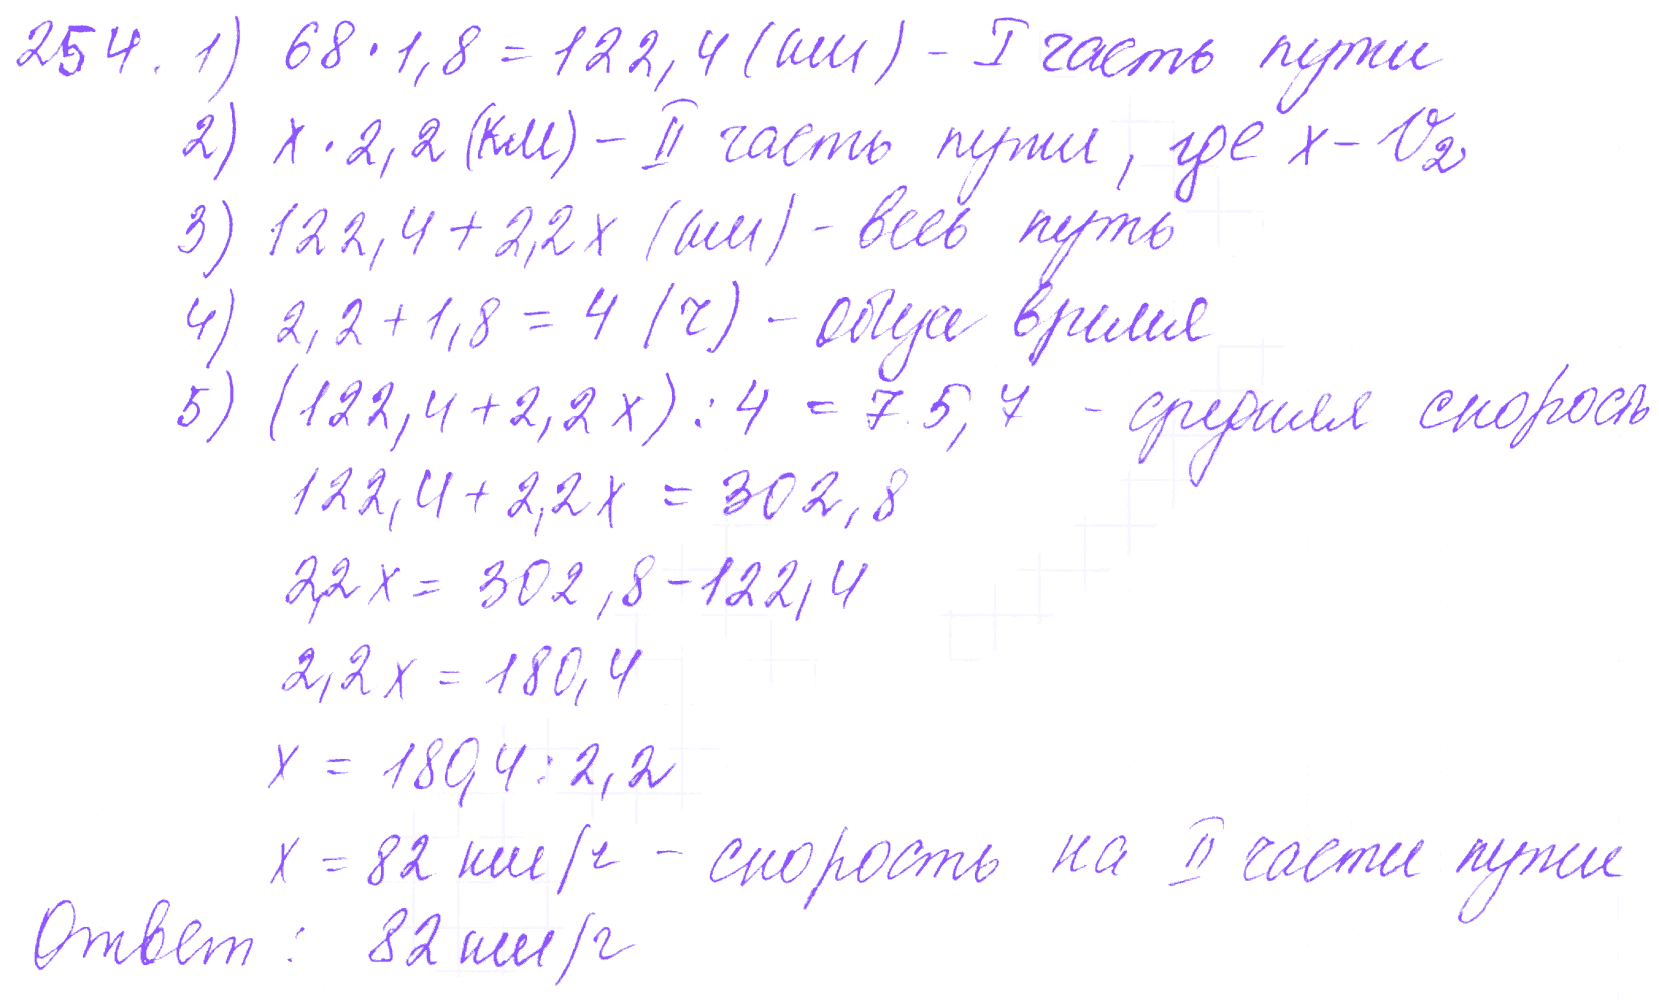 254. 1) 68 · 1,8 = 122,4 (км) - I часть пути
2) x · 2,2 (км) - II часть пути, где x - V₂
3) 122,4 + 2,2x (км) - весь путь
4) 2,2 + 1,8 = 4 (ч) - общее время
5) (122,4 + 2,2x) : 4 = 75,7 - средняя скорость
122,4 + 2,2x = 302,8
2,2x = 302,8 - 122,4
2,2x = 180,4
x = 180,4 : 2,2
x = 82 км/ч - скорость на II части пути
Ответ: 82 км/ч